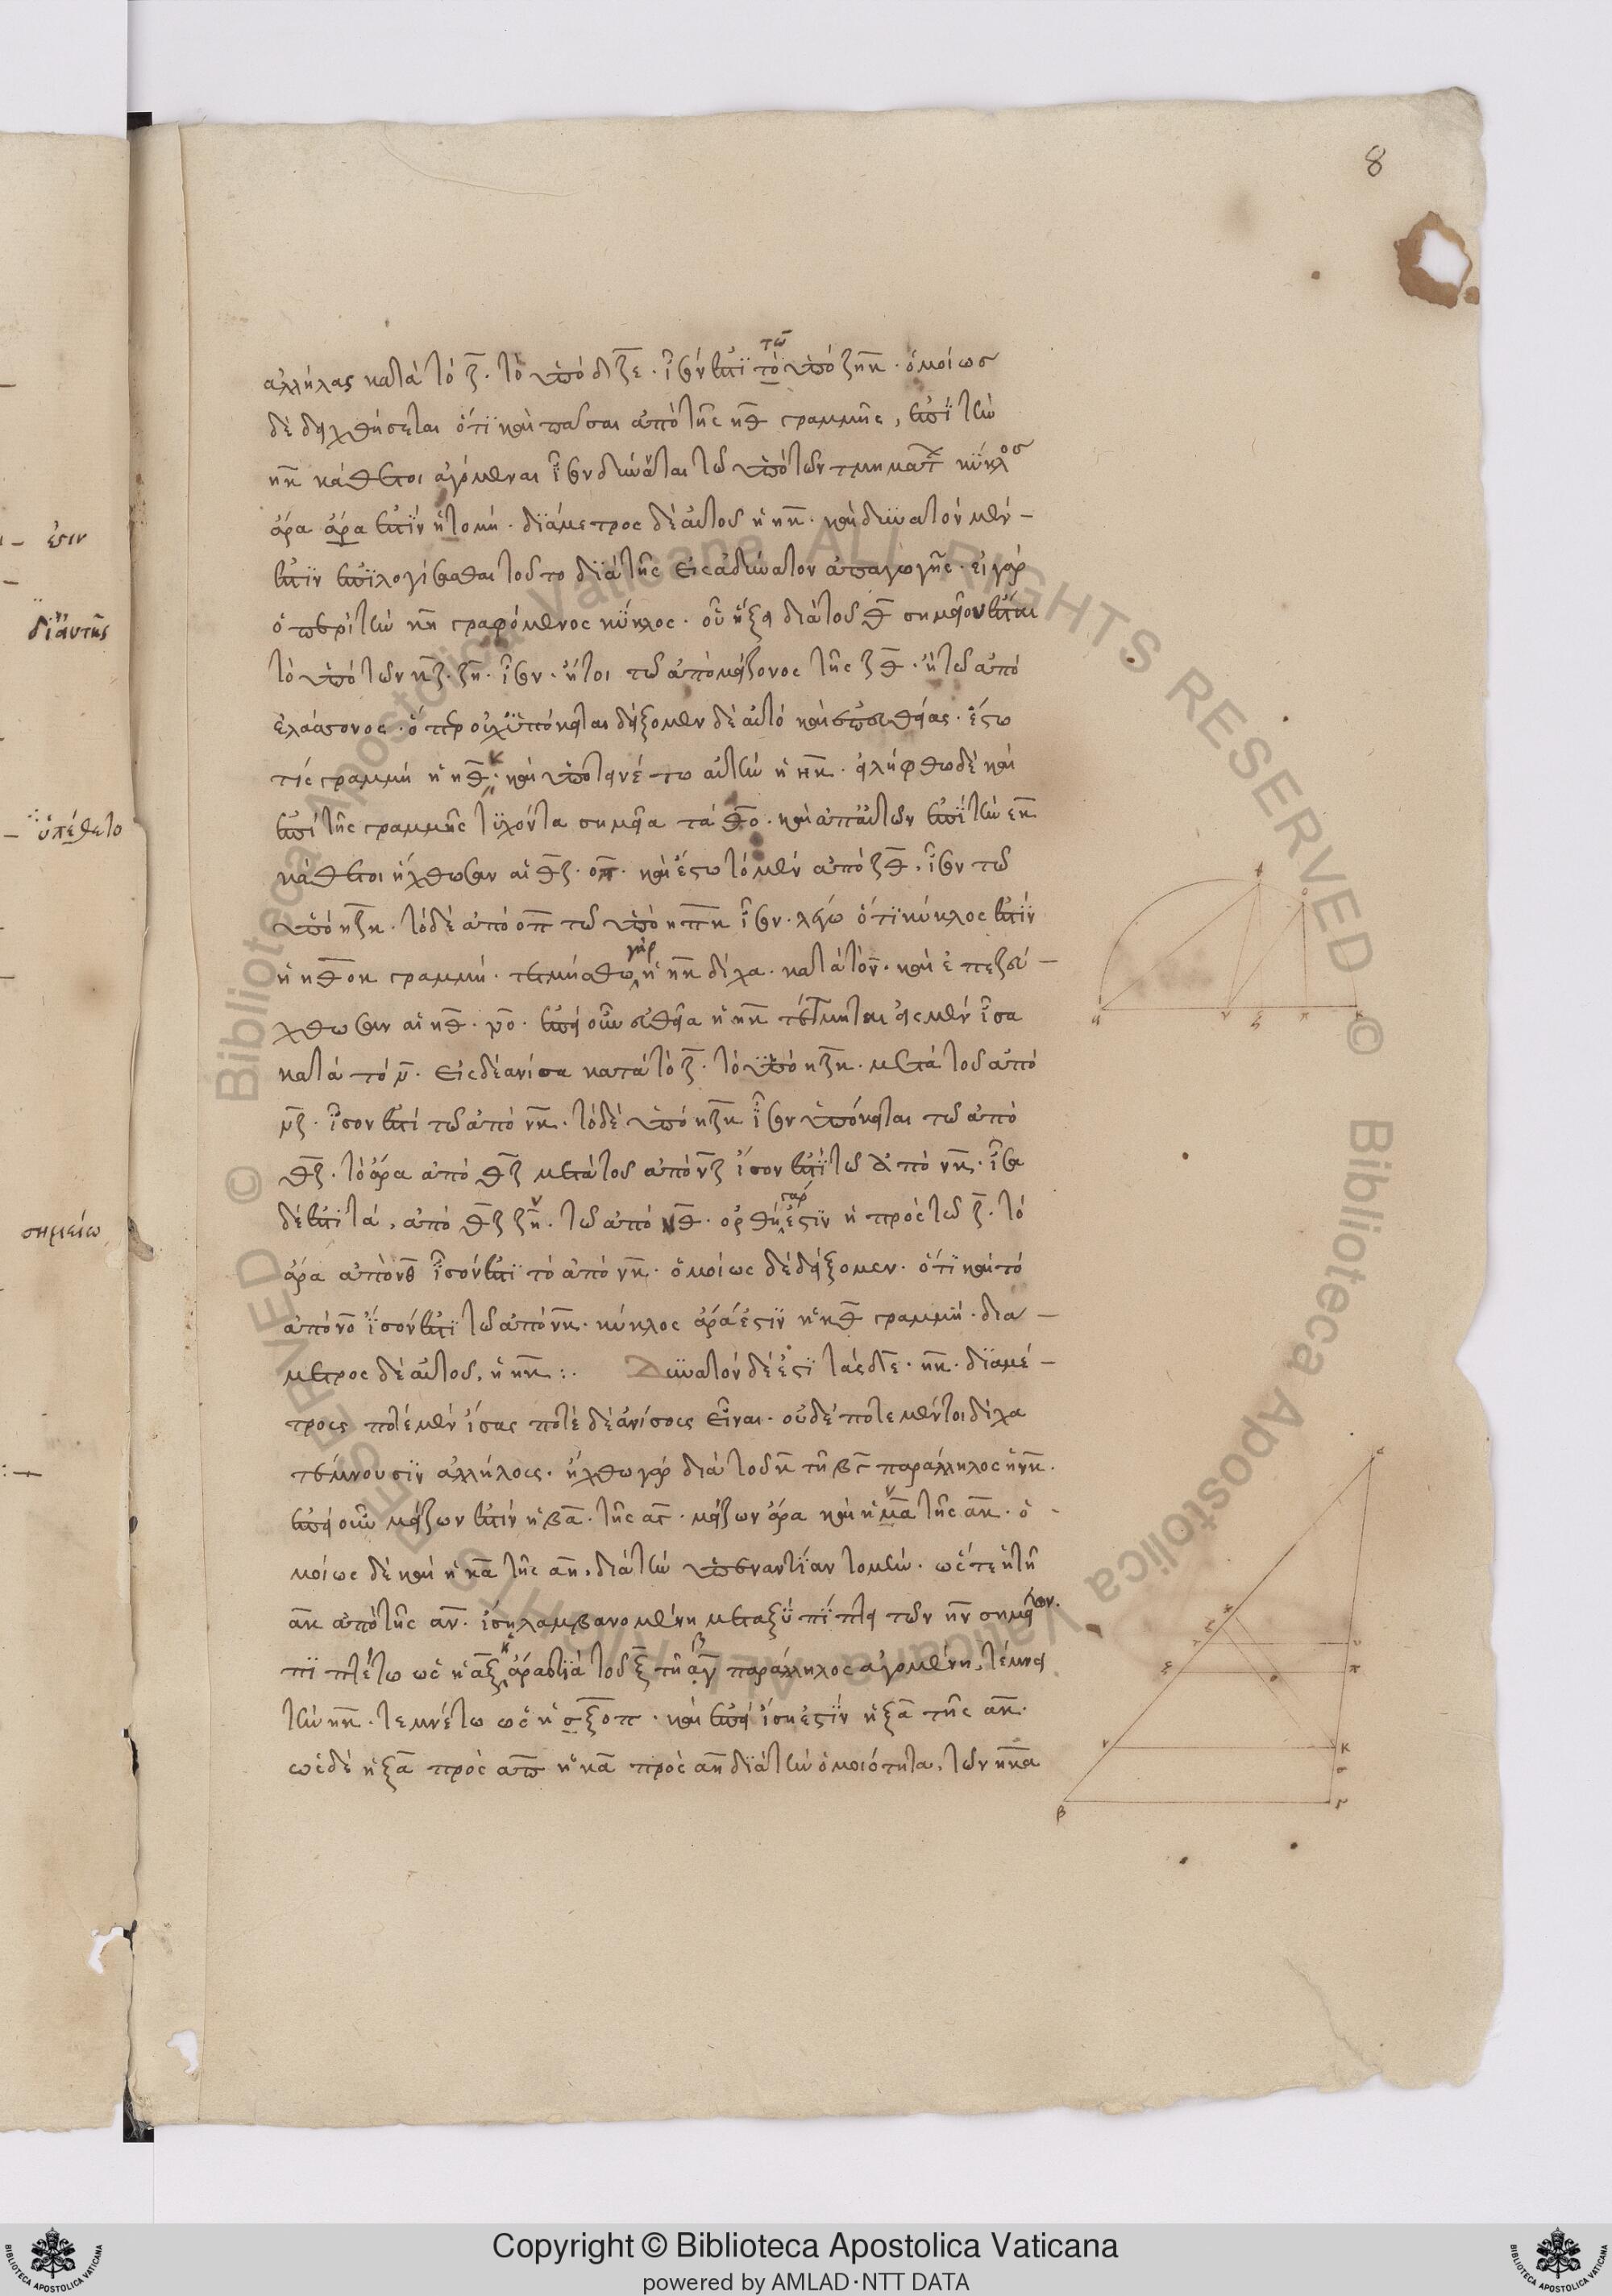 8
ἀλλήλας κατὰ τὸ ζ. τὸ ὑπὸ δζε. ἴσόν ἐστὶ τὸ ὑπὸ ζηκ. ὁμοίως
τῶ
δὲ δειχθήσεται ὅτι καὶ πᾶσαι ἀπὸ τῆς ηθ γραμμῆς, ἐπὶ τὴν
ηκ κάθετοι ἀγόμεναι ἴσον δύνανται τῶ ὑπὸ τῶν τμημάτ κύκλος
ἄρα ἄρα ἐστὶν ἡ τομή. διάμετρος δὲ αὐτοῦ ἡ ηκ. καὶ δυνατὸν μὲν –
ἐστὶν ἐπιλογίσασθαι τοῦτο διὰ τῆς εἰς ἀδύνατον ἀπαγωγῆς. εἰ γὰρ
ὁ περὶ τὴν κη γραφόμενος κύκλος. οὐ ἥξει διὰ τοῦ θ σημείου ἔσται
τὸ ὑπὸ τῶν κζ. ζη. ἴσον. ἤτοι τῶ ἀπὸ μείζονος τῆς ζθ. ἢ τῶ ἀπὸ
ἐλάσσονος. ὅπερ οὐχ ὑπόκειται δείξομεν δὲ αὐτὸ καὶ ἐπ' εὐθείας. ἔστω
τίς γραμμὴ ἡ ηθκ. καὶ ὑποτεινέτω αὐτὴν ἡ ηκ. εἰλήφθω δὲ καὶ
ἐπὶ τῆς γραμμῆς τυχόντα σημεῖα τὰ θο. καὶ ἀπ' αὐτῶν ἐπὶ τὴν εκ
κάθετοι ἤχθωσαν αἱ θζ. οπ. καὶ ἔστω τὸ μὲν ἀπὸ ζθ. ἴσον τῶ
ὑπὸ ηζκ. τὸ δὲ ἀπὸ οπ τῶ ὑπὸ ηπκ ἴσον. λέγω ὅτι κύκλος ἐστὶν
ἡ ηθοκ γραμμή. τετμήσθω γὰρ ἡ ηκ δίχα. κατὰ τὸ ν. καὶ ἐπεζεύ –
χθωσαν αἱ ηθ. νο. ἐπεὶ οὖν εὐθεῖα ἡ ηκ τέτμηται εἰς μὲν ἴσα
κατὰ τὸ ν. εἰς δὲ ἄνισα κατὰ τὸ ζ. τὸ ὑπὸ ηζκ. μετὰ τοῦ ἀπὸ
νζ. ἴσον ἐστὶ τῶ ἀπὸ νκ. τὸ δὲ ὑπὸ ηζκ ἴσον ὑπόκειται τῶ ἀπὸ
θζ. τὸ ἄρα ἀπὸ θζ μετὰ τοῦ ἀπὸ νζ ἴσον ἐστὶ τῶ ἀπὸ νκ. ἴσα
δέ ἐστὶ τά, ἀπὸ θζ ζν. τῶ ἀπὸ νθ. ὀρθὴ γάρ ἐστὶν ἡ πρὸς τῶ ζ. τὸ
ἄρα ἀπὸ νθ ἴσόν ἐστὶ τὸ ἀπὸ νκ. ὁμοίως δὲ δείξομεν. ὅτι καὶ τὸ
ἀπὸ νο ἴσόν ἐστὶ τῶ ἀπὸ νκ. κύκλος ἄρά ἐστὶν ἡ ηθ γραμμή. δια –
μετρος δὲ αὐτοῦ, ἡ ηκ :. Δυνατὸν δέ ἐστι τὰς δε. ηκ. διαμέ –
τροις ποτὲ μὲν ἴσας ποτὲ δὲ ἀνίσοις εἶναι. οὐδέποτε μέντοι δίχα
τέμνουσιν ἀλλήλοις. ἤχθω γὰρ διὰ τοῦ κ τῆ βγ παράλληλος ἡ νκ.
ἐπεὶ οὖν μείζων ἐστὶν ἡ βα. τῆς αγ. μείζων ἄρα καὶ ἡ να τῆς ακ. ὁ –
μοίως δὲ καὶ ἡ κα τῆς αη, διὰ τὴν ὑπεναντίαν τομήν. ὥστε ἡ τῆ
ακ ἀπὸ τῆς αν. ἴση λαμβανομένη μεταξὺ πίπτει τῶν ην σημείων.
πιπτέτω ὡς ἡ αξ. ἡ ἄρα διὰ τοῦ ξ τῆ βγ παράλληλος ἀγομένη. τέμνει
τὴν ηκ. τεμνέτω ὡς ἡ σξοπ. καὶ ἐπεὶ ἴση ἐστὶν ἡ ξα τῆς ακ.
ὡς δὲ ἡ ξα πρὸς απ ἡ κα πρὸς αη διὰ τὴν ὁμοιότητα. τῶν ηκα
ἐσιν
δι' αὐτῆς
ὑπέθετο
σημείω
Copyright © Biblioteca Apostolica Vaticana
powered by AMLAD·NTT DATA
© Biblioteca Apostolica Vaticana ALL RIGHTS RESERVED